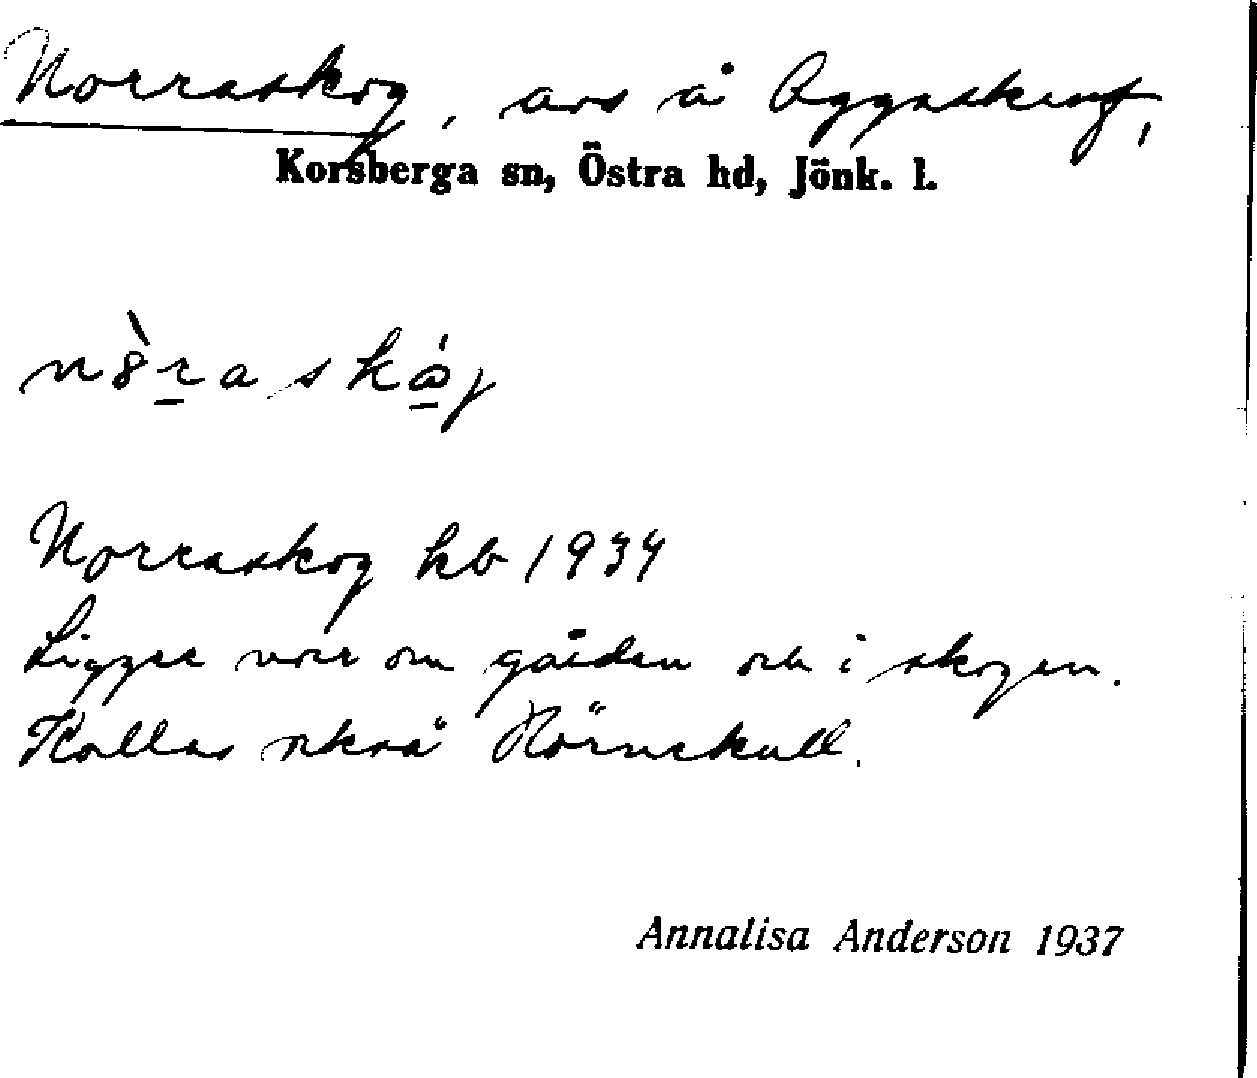 Norraskog, avs å Äggaskruf,
Korsberga sn, Östra hd, Jönk. l.
nòraskój
Norraskog kb 1934
Ligger norr om gården och i skogen.
Kallas också Hörnekull.
Annalisa Anderson 1937